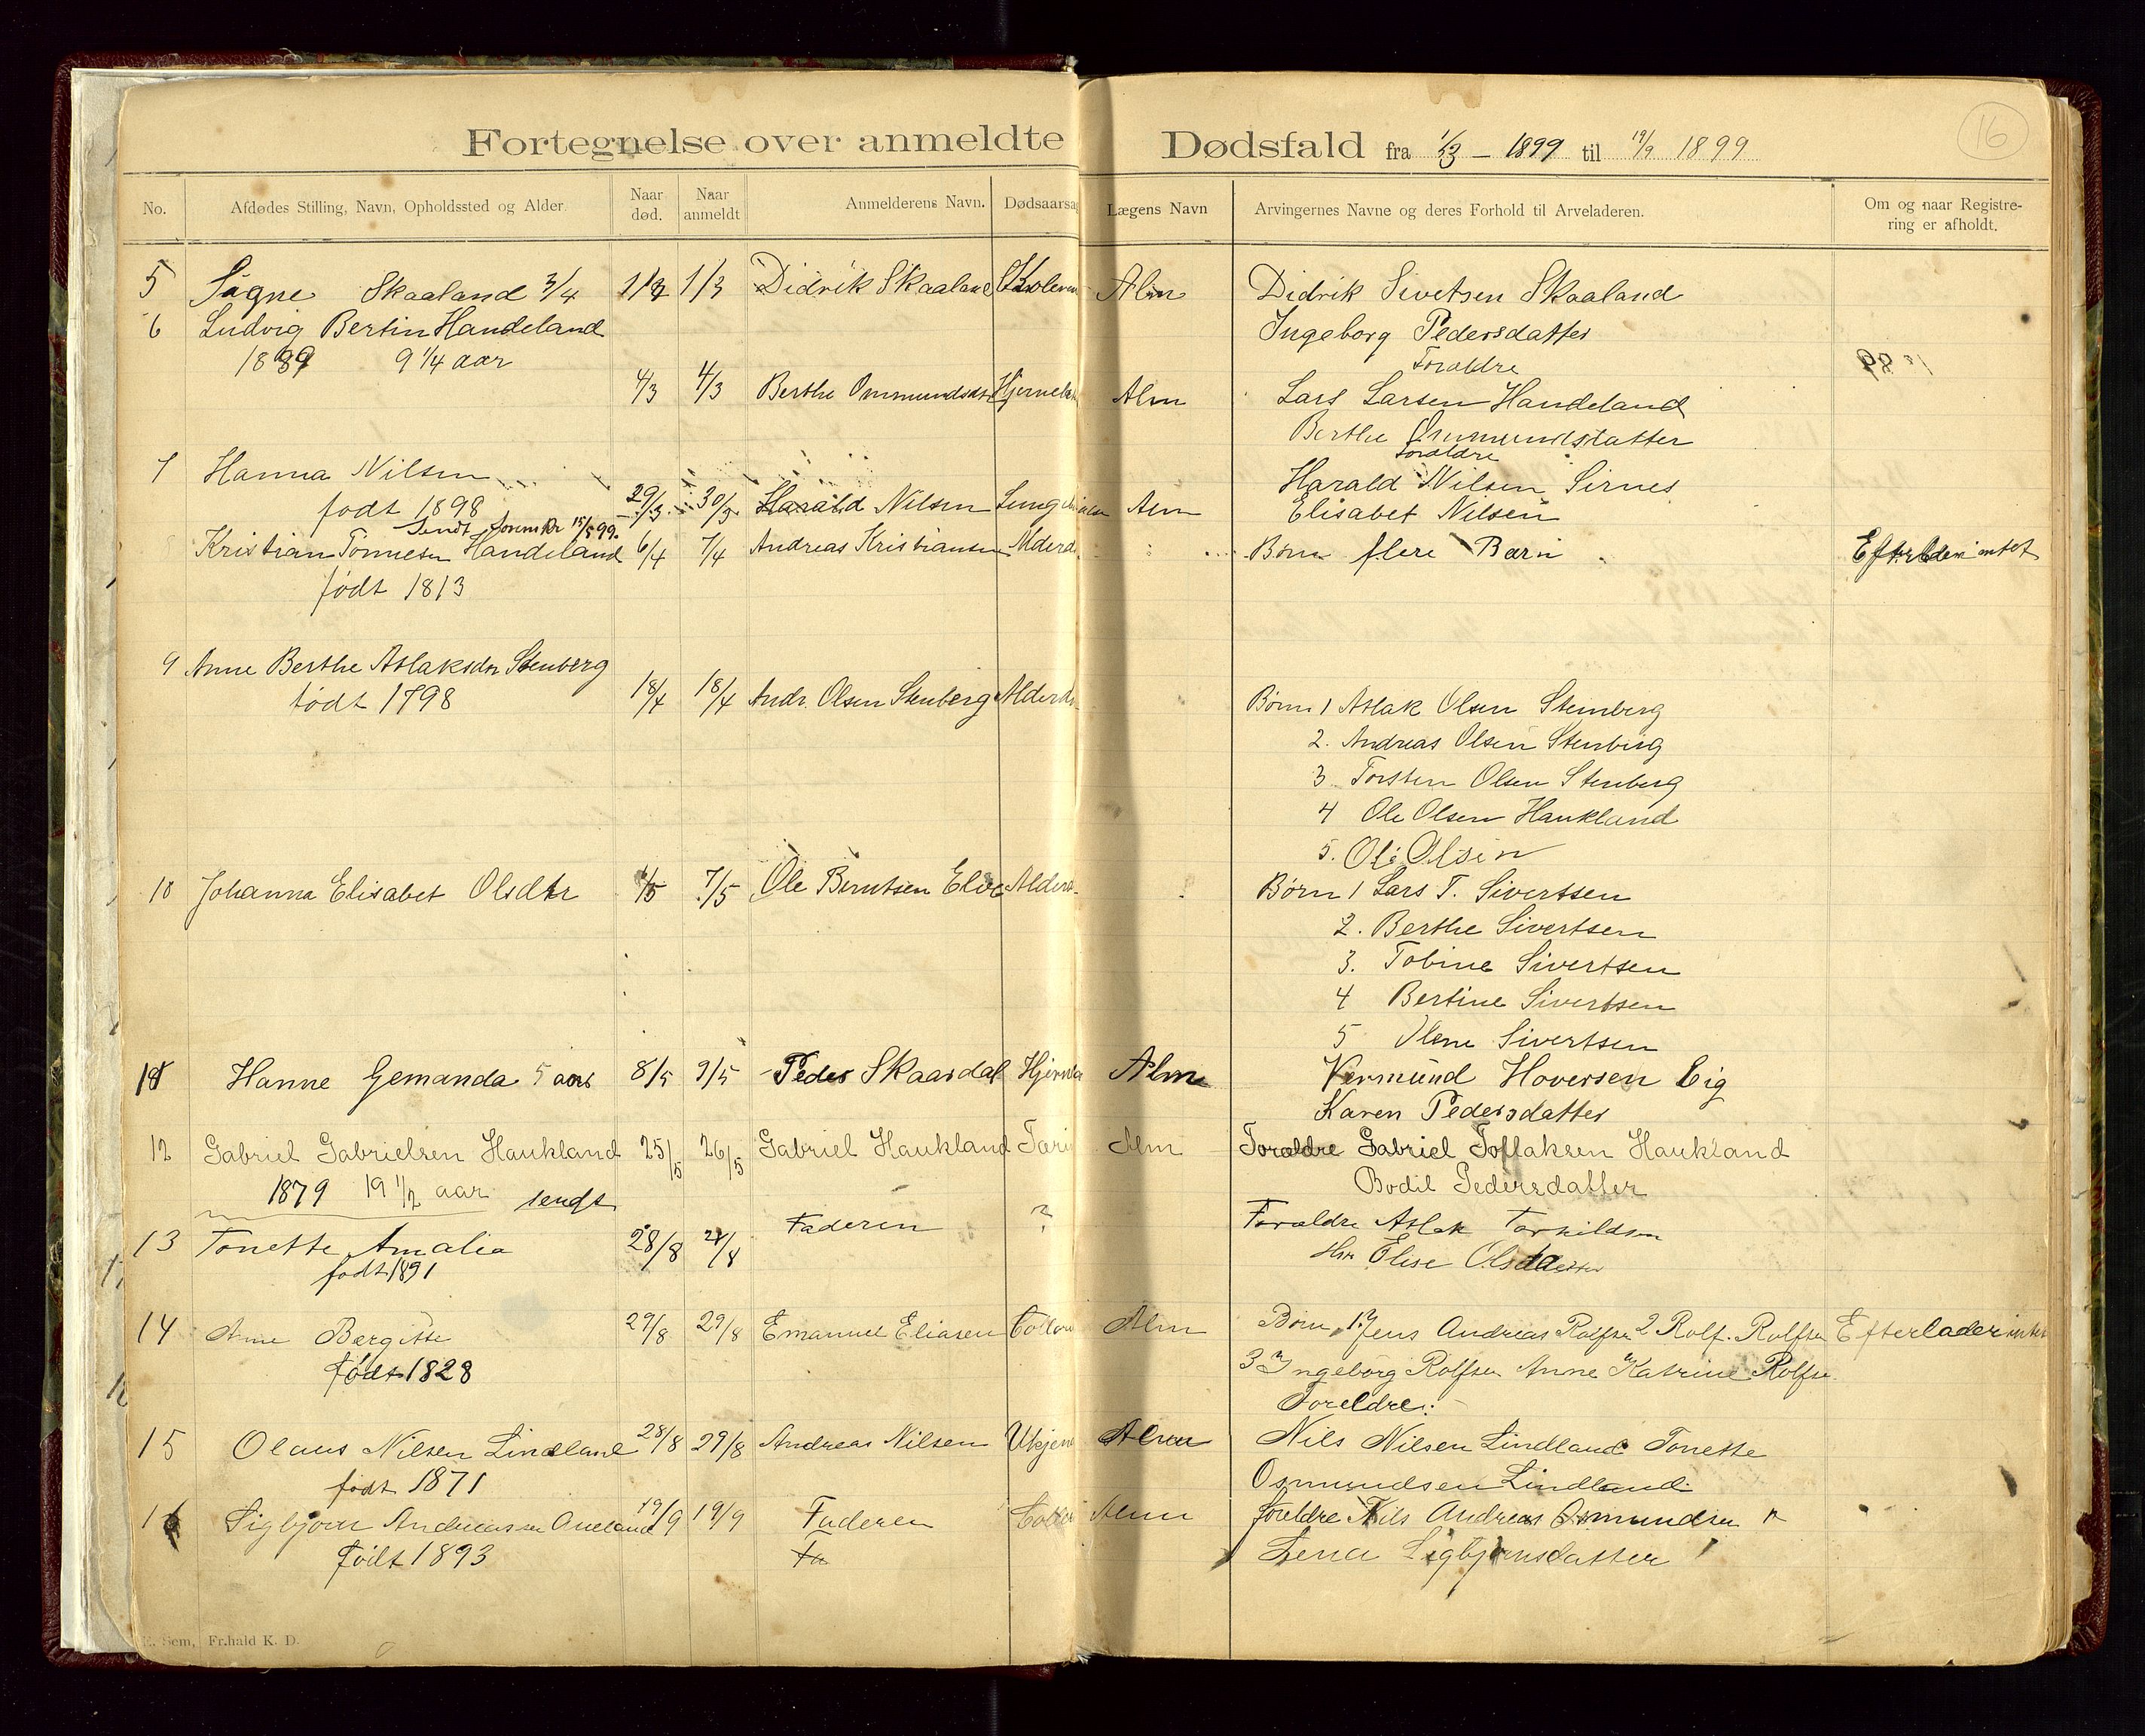 16
Fortegnelse over anmeldte Dødsfald fra 1/3 – 1899 til 19/9 1899
No. Afdødes Stilling, Navn, Opholdssted og Alder. Naar død. Naar anmeldt Anmelderens Navn. Dødsaarsag Lægens Navn Arvingernes Navne og deres Forhold til Arveladeren. Om og naar Registrering er afholdt.
5 Signe Skaaland 3/4 1/3 1/3 Didrik Skaaland Alm Didrik Sivetsen Skaaland
6 Ludvig Bertin Handeland Ingeborg Pedersdatter
1889 9 1/4 aar Foraldre
4/3 4/3 Berthe Ommundsdtr Alm Lars Larsen Handeland
Berthe Ommundsdatter
Foraldre
7 Hanna Nilsen Harald Nilsen Sirnes
født 1898 29/3 30/3 Harald Nilsen Alm Elisabet Nilsen
Sendt 15/5 99.
Kristian Tønnesen Handeland 6/4 7/4 Andreas Kristiansen Alderd Børn flere Barn Efterlader intet
født 1813
9 Anne Berthe Aslaksdtr Stenberg
født 1798 18/4 18/4 Andr. Olsen Stenberg Alderd Børn 1 Aslak Olsen Stenberg
2. Andreas Olsen Stenberg
3 Torsten Olsen Stenberg
4 Ole Olsen Haukland
5. Ole Olsen
10 Johanna Elisabet Olsdtr 7/5 Ole Berntsen Elve Alderd Børn 1 Lars T. Sivertsen
2. Berthe Sivertsen
3. Tobine Sivertsen
4 Bertine Sivertsen
5 Olene Sivertsen
11 Hanne Gemanda 5 aar 8/5 9/5 Peder Skaardal Alm Vermund Hoversen Eig
Karen Pedersdatter
12 Gabriel Gabrielsen Haukland 25/5 26/5 Gabriel Haukland Tæri Alm Foraldre Gabriel Haukland
1879 19 1/2 aar sendt Bodil Pedersdatter
13 Tonette Amalia 28/8 /8 Faderen ? Foraldre Aslak Torkildsen
født 1891 Elise Olsdatter
14 Anne Bergitte 29/8 29/8 Emanuel Eliasen Alm Børn 1 Jens Andreas Rolfsen 2 Rolf. Rolfsen Efterlader intet
født 1828 3 Ingeborg Rolfsen Anne Katrine Rolfsen
Foreldre:
15 Olaus Nilsen Lindland 28/8 29/8 Andreas Nilsen Ukjen Alm Nils Nilsen Lindland Tonette
født 1871 Osmundsen Lindland
16 Sigbjørn Andreassen Aueland 19/9 19/9 Faderen Alm foreldre Nils Andreas Osmundsen
født 1893 Fa Lena Sigbjørnsdatter
E. Sem, Fr.hald K. D.